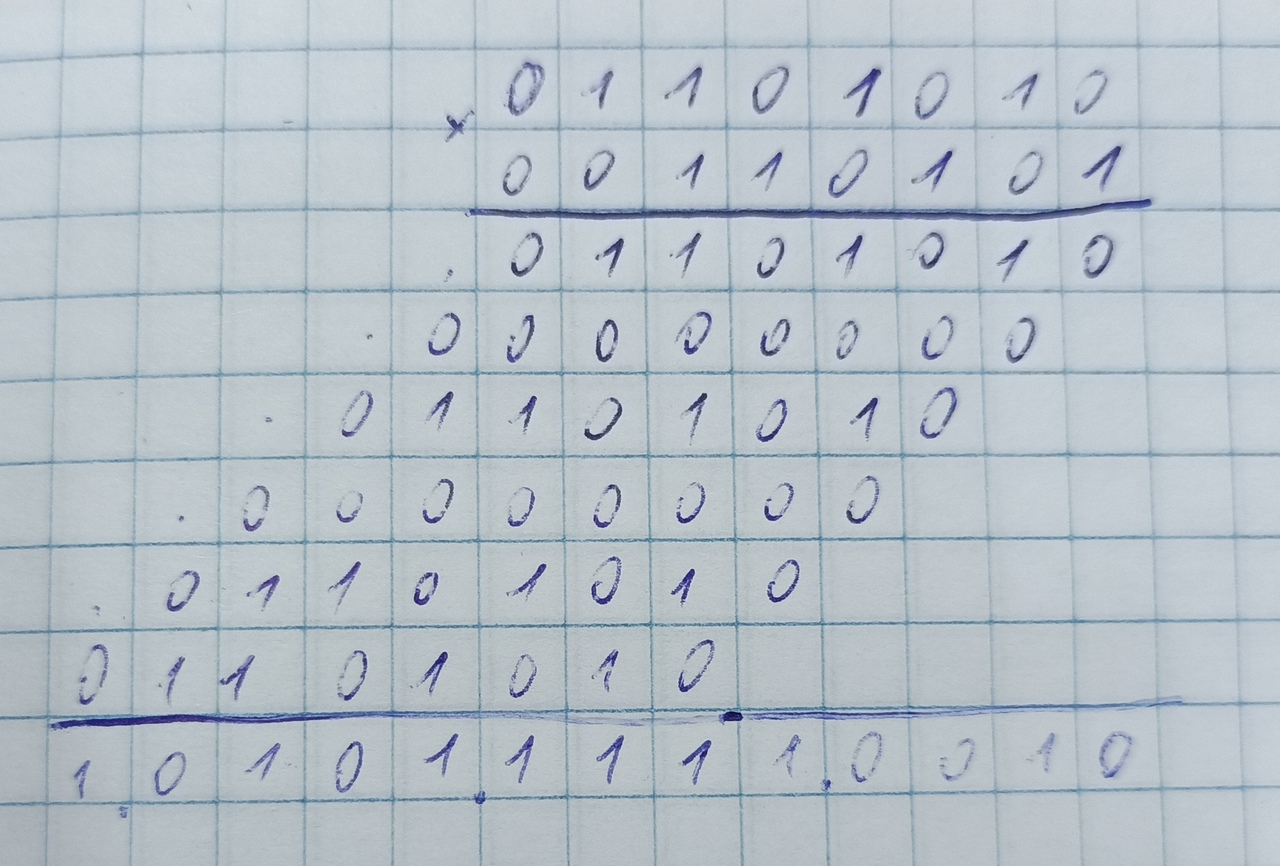 0 1 1 0 1 0 1 0
×
0 0 1 1 0 1 0 1
. 0 1 1 0 1 0 1 0
. 0 0 0 0 0 0 0 0
. 0 1 1 0 1 0 1 0
. 0 0 0 0 0 0 0 0
. 0 1 1 0 1 0 1 0
0 1 1 0 1 0 1 0
1.0 1 0 1.1 1 1 1.0 0 1 0